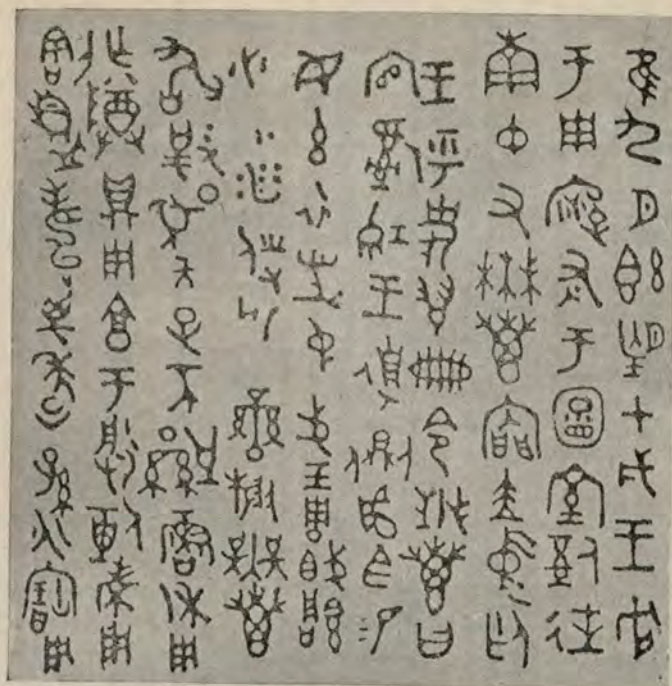 隹九月既望甲戌王各
于周廟于圖室司徒
南中右無叀內門立中廷
王乎史翏冊令無叀曰
官司王遉側虎臣易女
玄衣黹屯戈琱胾
彤沙攸勒鑾旂無叀
敢對揚天子不顯魯休用
乍尊鼎用享于朕剌考用
割眉壽萬年子孫永寶用